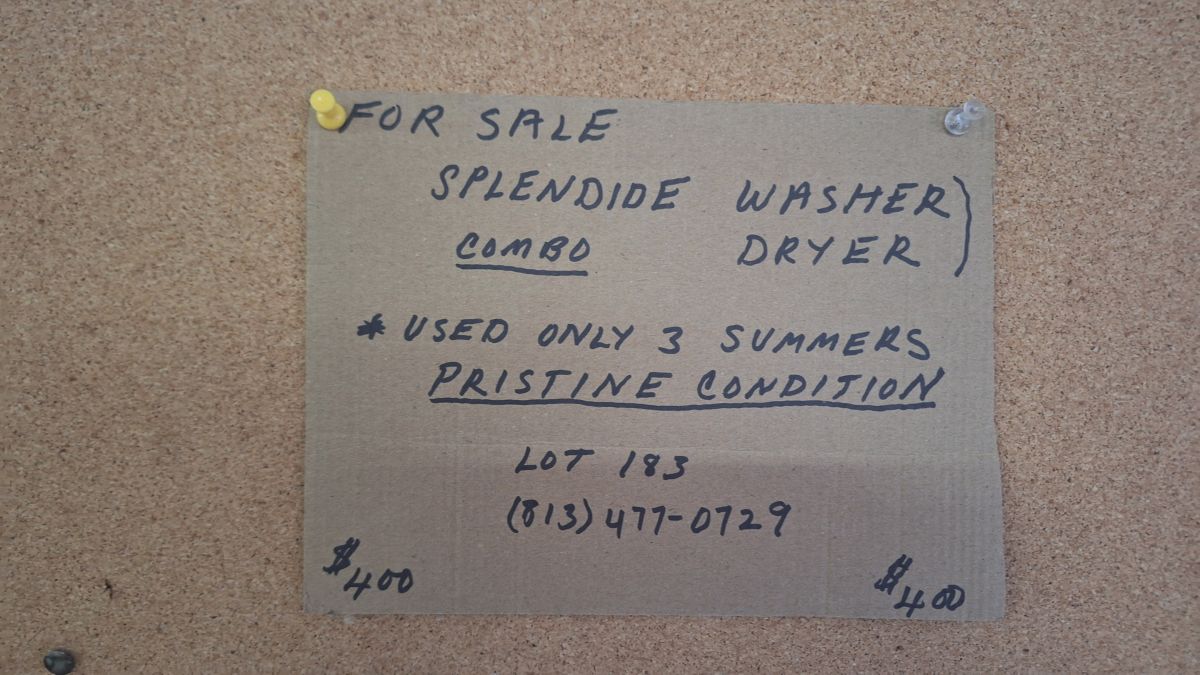 FOR SALE
SPLENDIDE WASHER
COMBO DRYER
* USED ONLY 3 SUMMERS
PRISTINE CONDITION
LOT 183
(813) 477-0729
$400 $400